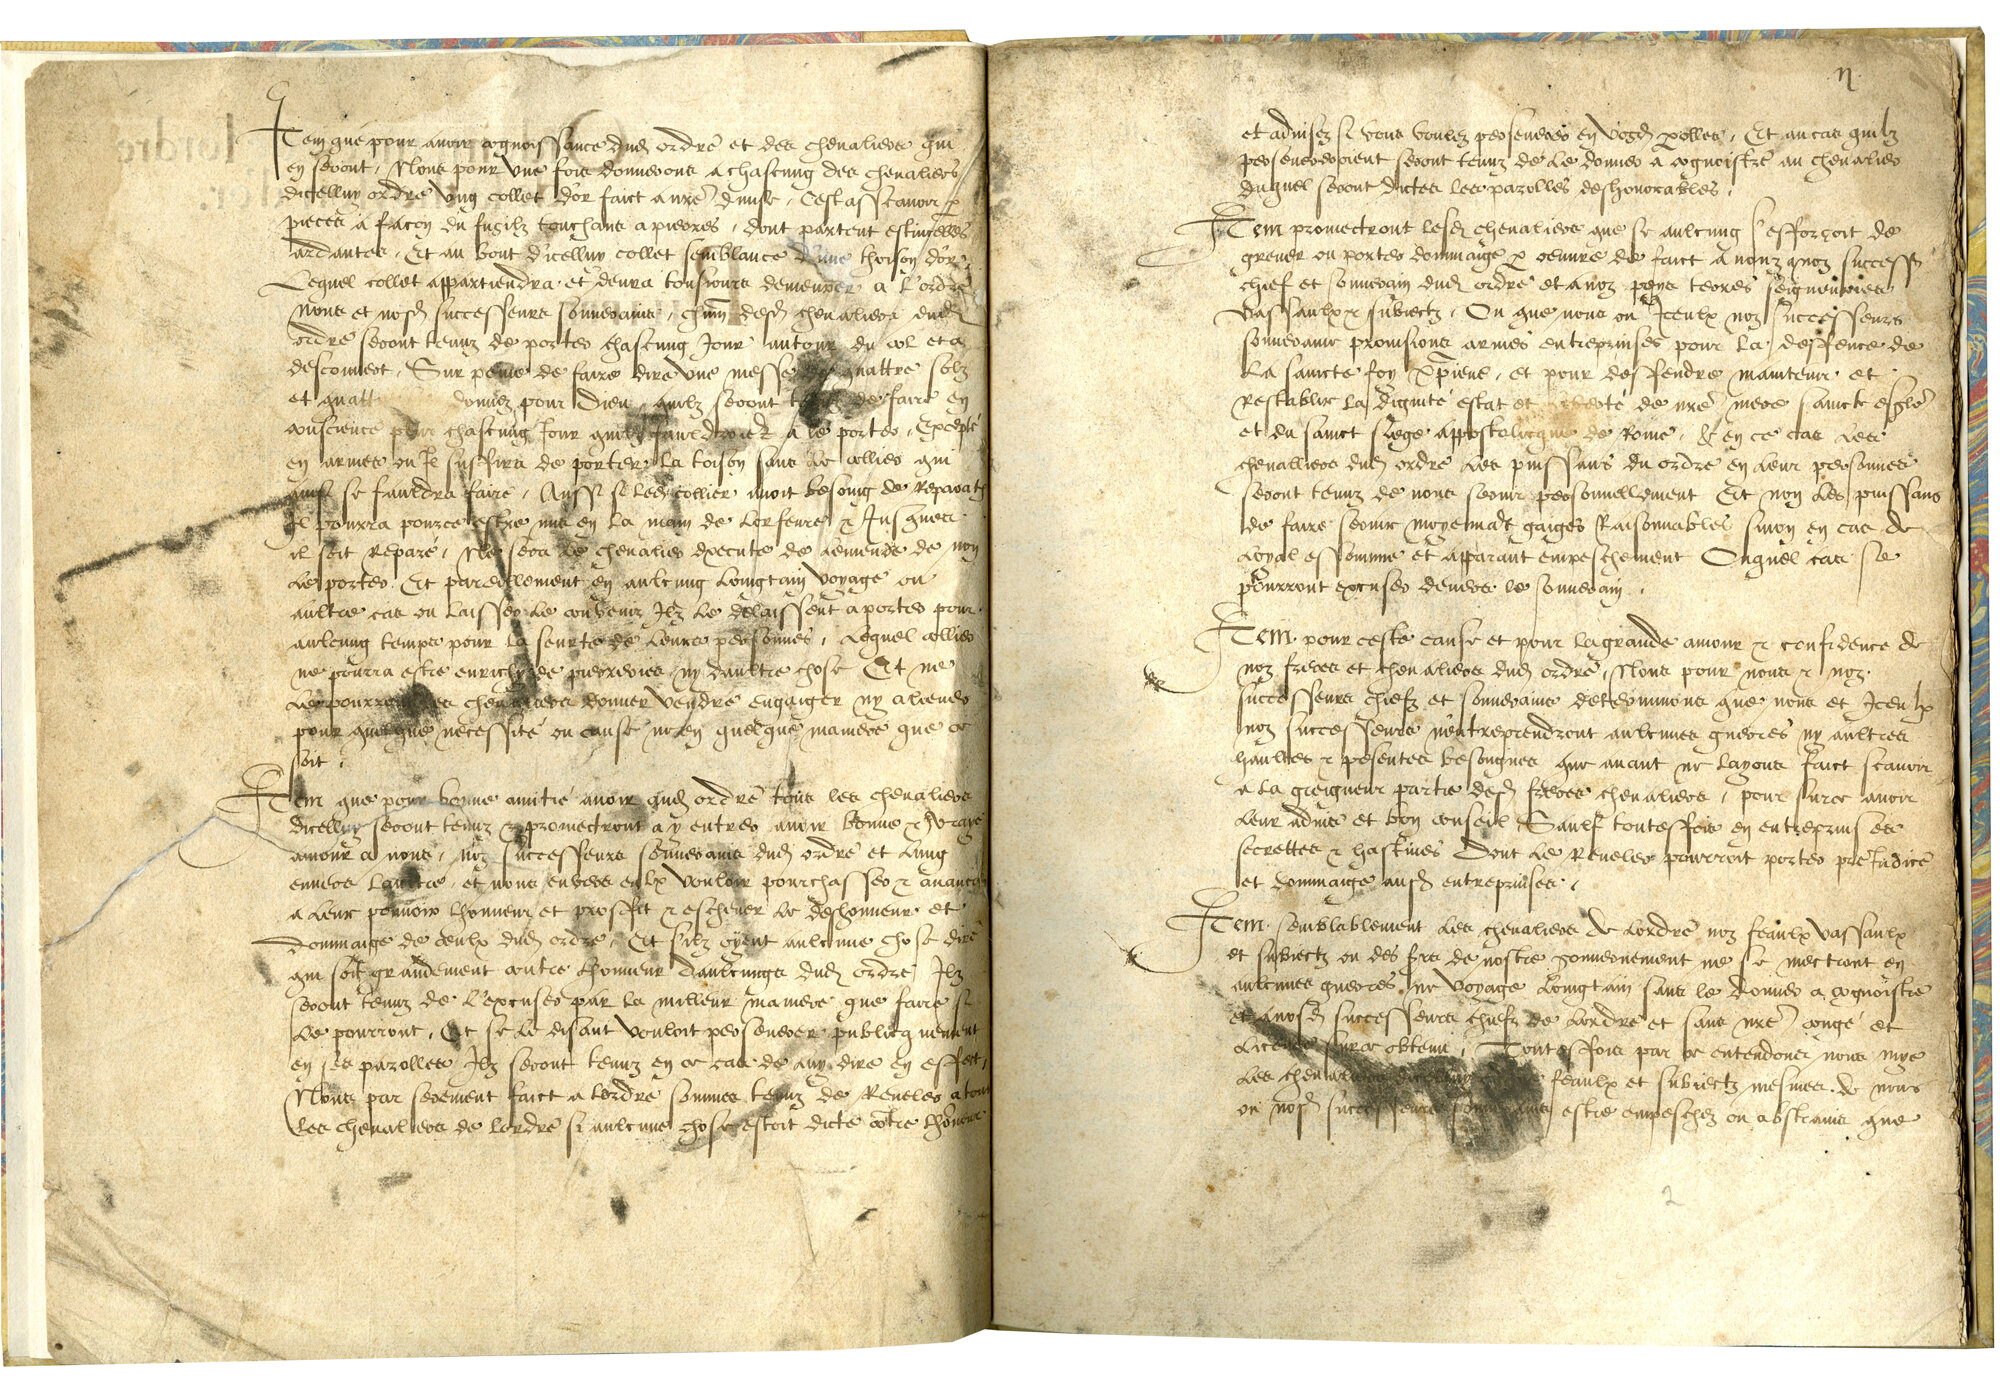 Item que pour avoir cognoissance dud ordre et des chevaliers qui
en seront, Nous pour une fois donnerons a chascung des chevaliers
dicelluy ordre ung collet d'or faict a nre devise, C'est asscavoir p
pieces a facon du fusilz touchans a pierres, dont partent estincelles
ardantes, Et au bout d'icelluy collet semblance d'une thoison d'or,
Lequel collet appartiendra et devra tousiours demeurer a l'ordre
Nous et nosd successeurs souverains, chūn desd chevaliers dud
ordre seront tenuz de porter chascung Jour autour du col et a
descouvert, Sur peine de faire dire une messe de quattre solz
et quatt donnez pour Dieu quilz seront de faire en
conscience pour chascung Jour quilz fauldroient a le porter, Excepté
en armes ou Il suffira de porter la toison sans le collier qui
ainsi se fauldra faire, Aussi se led collier avoit besoing de reparatn
Il pourra pource estre mis en la main de Lorfeure & Jusques
il soit reparé, Ne sera le chevalier execute de Lemende de non
le porter. Et pareillement en aulcung loingtain voyage ou
aultre cas ou laisser le convenir Ilz le delaissent a porter pour
aulcung temps pour la seurté de leurs personnes, Lequel collier
ne pourra estre enrichy de pierreries ny daultre chose Et ne
le pourront les chevaliers donner vendre engaiger ny aliener
pour quelque necessité ou cause ne en quelque maniere que ce
soit,
Item que pour bonne amitié avoir aud ordre tous les chevaliers
dicelluy seront tenuz & promectront a y entrer avoir bonne & vraye
amour a nous, noz successeurs souverains dud ordre et lung
envers laultre, et nous envers eulx vouloir pourchasser & avancer
a leur pouvoir lhonneur et proffit & eschever le deshonneur et
Dommaige de ceulx dud ordre, Et silz oyent aulcune chose dire
qui soit grandement contre lhonneur daulcungs dud ordre, Ilz
seront tenuz de l'excuser par la milleur maniere que faire si
le pourront, Et se le disant vouloit perseverer publicquement
en ses parolles Ilz seront tenuz en ce cas de luy dire en effect,
Nous par serement faict a lordre sommes tenuz de reveler a tous
les chevaliers de lordre si aulcune chose estoit dicte contre lhoneur
n
et advisez si vous voulez perseverer en vosd parolles, Et au cas quilz
persevereroient seront tenuz de le donner a cognoistre au chevalier
duquel seront dictes les parolles deshonorables,
Item promectront lesd chevaliers que se aulcung s'efforçoit de
grever ou porter dommaige p oeuvre de faict a nous & noz success
chief et souverain dud ordre et a noz pays terres seigneuries
Vassaulx & subiectz, Ou que nous ou Iceulx noz successeurs
souverains prenisions armes entreprinses pour la deffence de
la saincte foy xpiene, et pour deffendre, maintenir et
restablir la dignité estat et liberté de nre mere saincte esglise
et du sainct siege appostolicque de Rome, & en ce cas les
chevalliers dud ordre les puissans du ordre en leur personnes
seront tenuz de nous servir personnellement Et non les puissans
de faire servir moyenant gaiges raisonnables sinon en cas de
loyal essoinne et apparant empeschement Ouquel cas se
pourront excuser devers le souverain,
Item pour ceste cause et pour la grande amour & confidence de
noz freres et chevaliers dud ordre, Nous pour nous & noz
successeurs chiefz et souverains determinons que nous et Iceulx
noz successeurs n'entreprendront aulcunes guerres ny aultres
haultes & pesentes besongnes que avant ne layons faict scavoir
a la greigneur partie desd freres chevaliers, pour surce avoir
leur advis et bon conseil, Saulf toutesfois en entreprinses
secrettes & hastives Dont le reveler pourroit porter preIudice
et dommaige ausd entreprinses,
Item semblablement les chevaliers de lordre noz feaulx vassaulx
et subiectz ou des fre de nostre gouvernement ne se mectront en
aulcunes guerres ne voyage loingtain sans le donner a cognoistre
et a nosd successeurs chiefz de lordre et sans nre congé et
licence surce obtenu, Toutesfois par ce entendons nous mye
les chevaliers feaulx et subiectz mesmes de nous
ou nosd successeurs souverains estre empeschez ou abstrains que
2